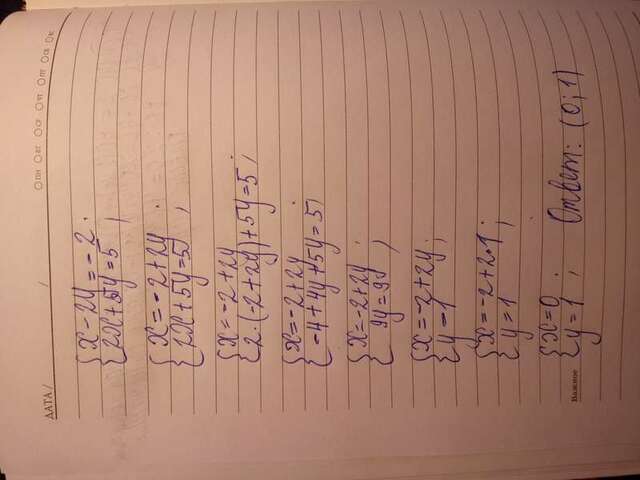 ДАТА/ /
ПН ВТ СР ЧТ ПТ СБ ВС
{x-2y=-2
{2x+5y=5;
{x=-2+2y
{2x+5y=5;
{x=-2+2y
{2·(-2+2y)+5y=5;
{x=-2+2y
{-4+4y+5y=5;
{x=-2+2y;
{9y=9;
{x=-2+2y;
{y=1;
{x=-2+2·1;
{y=1;
{x=0
{y=1;
Ответ: (0; 1)
Важное